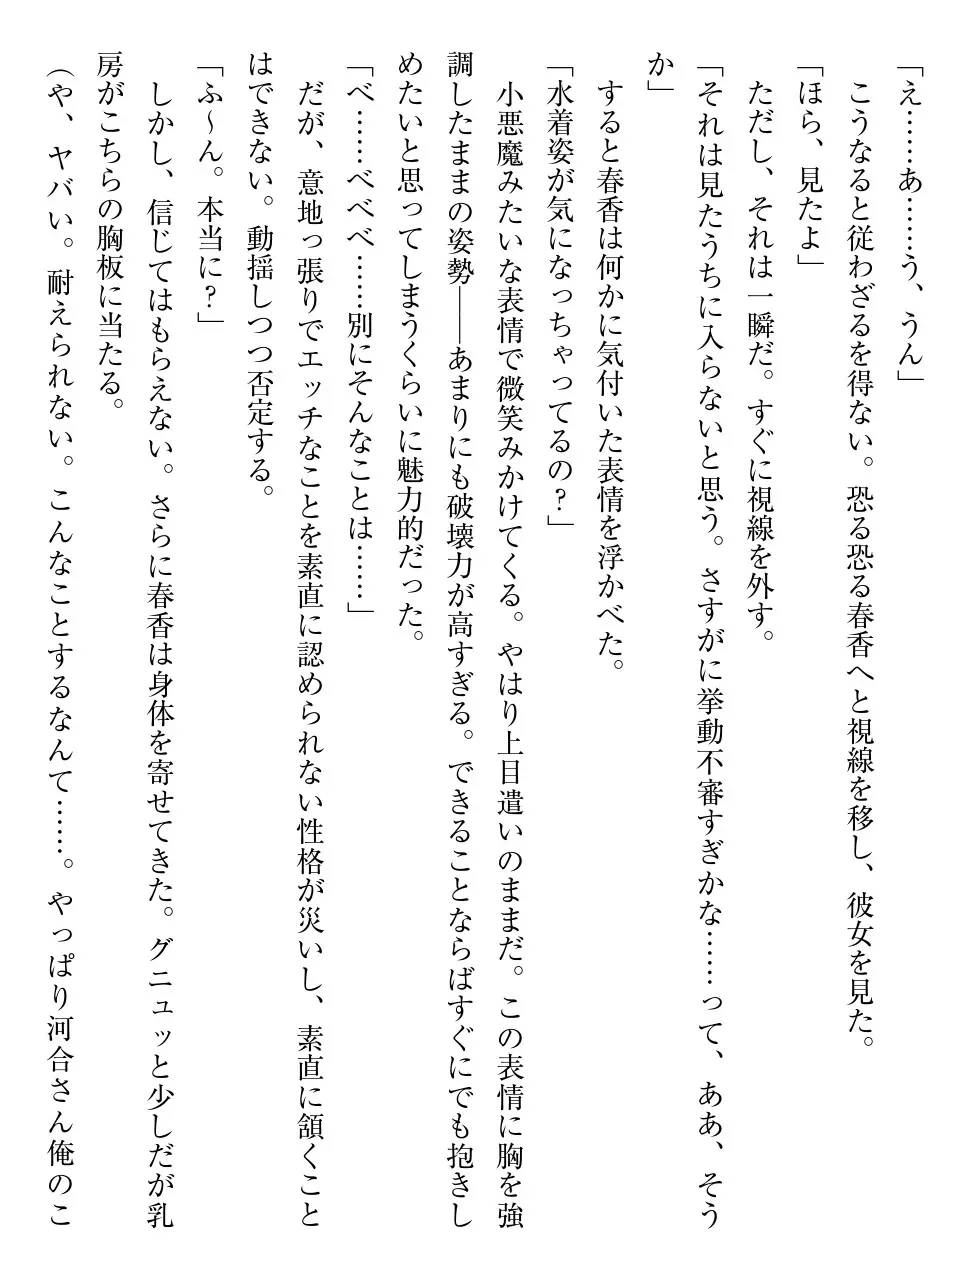 「え……あ……う、うん」
　こうなると従わざるを得ない。恐る恐る春香へと視線を移し、彼女を見た。
「ほら、見たよ」
　ただし、それは一瞬だ。すぐに視線を外す。
「それは見たうちに入らないと思う。さすがに挙動不審すぎかな……って、ああ、そう
か」
　すると春香は何かに気付いた表情を浮かべた。
「水着姿が気になっちゃってるの？」
　小悪魔みたいな表情で微笑みかけてくる。やはり上目遣いのままだ。この表情に胸を強
調したままの姿勢――あまりにも破壊力が高すぎる。できることならばすぐにでも抱きし
めたいと思ってしまうくらいに魅力的だった。
「べ……べべべ……別にそんなことは……」
　だが、意地っ張りでエッチなことを素直に認められない性格が災いし、素直に頷くこと
はできない。動揺しつつ否定する。
「ふ～ん。本当に？」
　しかし、信じてはもらえない。さらに春香は身体を寄せてきた。グニュッと少しだが乳
房がこちらの胸板に当たる。
（や、ヤバい。耐えられない。こんなことするなんて……。やっぱり河合さん俺のこ